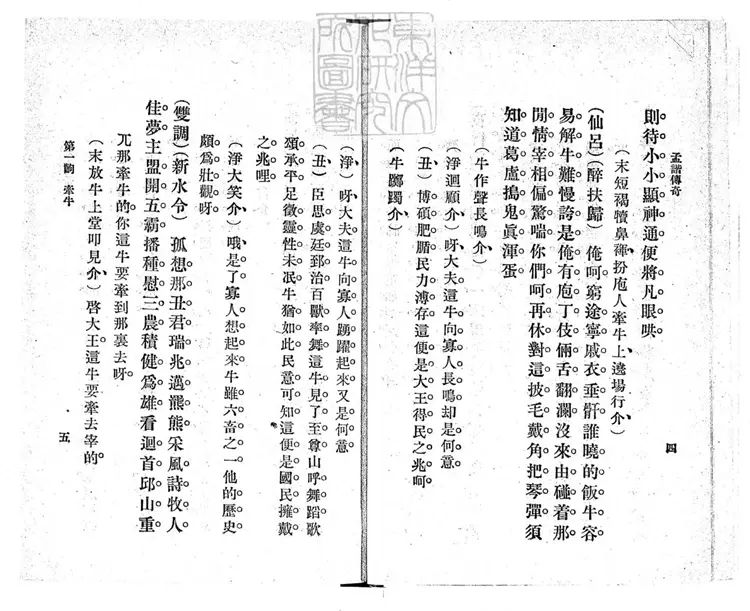 孟諧傳奇
四
則待小小顯神通便將凡眼哄。
（末短褐犢鼻褌扮庖人牽牛上遶場行介）
（仙呂）（醉扶歸）俺呵窮途寧戚衣垂骭誰曉的飯牛容
易解牛難慢誇是俺有庖丁伎倆舌翻瀾沒來由碰着那
閒情宰相偏驚喘你們呵再休對這披毛戴角把琴彈須
知道葛盧搗鬼眞渾蛋
（牛作聲長鳴介）
（淨迴顧介）呀大夫這牛向寡人長鳴却是何意
（丑）博碩肥腯民力溥存這便是大王得民之兆呵
（牛躑躅介）
（淨）呀大夫這牛向寡人踴躍起來又是何意
（丑）臣思虞廷郅治百獸率舞這牛見了至尊山呼舞蹈歌
頌承平足徵靈性未泯牛猶如此民意可知這便是國民擁戴
之兆哩
（淨大笑介）哦是了寡人想起來牛雖六畜之一他的歷史
頗爲壯觀呀
（雙調）（新水令）孤想那丑君瑞兆邁羆熊采風詩牧人
佳夢主盟開五霸播種慰三農積健爲雄看迴首邱山重
兀那牽牛的你這牛要牽到那裏去呀
（末放牛上堂叩見介）啓大王這牛要牽去宰的
第一齣 牽牛
五
東洋文
化研究
所圖書